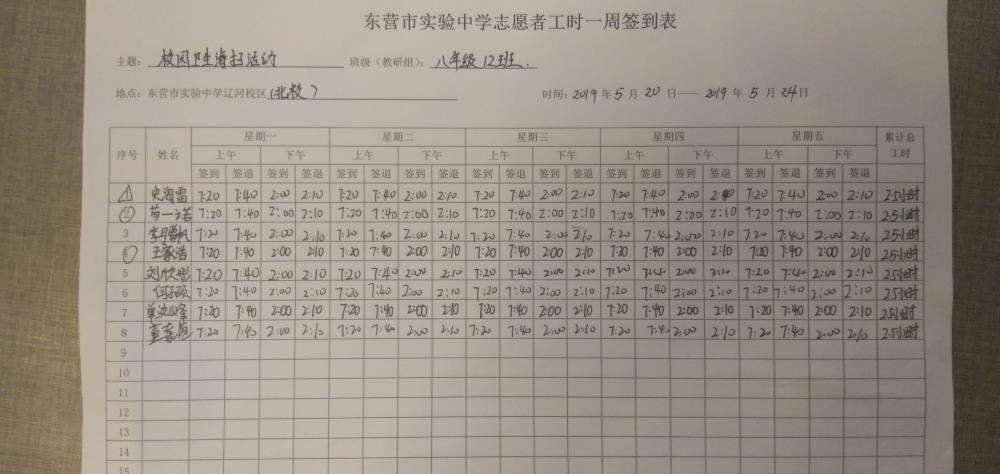 东营市实验中学志愿者工时一周签到表
主题: 校园卫生清扫活动 班级(教研组): 八年级12班.
地点: 东营市实验中学辽河校区(北校) 时间: 2019年5月20日——2019年5月24日
序号 姓名 星期一 星期二 星期三 星期四 星期五 累计总工时
上午 下午 上午 下午 上午 下午 上午 下午 上午 下午
签到 签退 签到 签退 签到 签退 签到 签退 签到 签退 签到 签退 签到 签退 签到 签退 签到 签退 签到 签退
1 7:20 7:40 2:00 2:10 7:20 7:40 2:00 2:10 7:20 7:40 2:00 2:10 7:20 7:40 2:00 7:20 7:40 2:00 2:10 2.5小时
2 7:20 7:40 2:00 2:10 7:20 7:40 2:00 2:10 7:20 7:40 2:00 2:10 7:20 7:40 2:00 2:10 7:20 7:40 2:00 2:10 2.5小时
3 7:20 7:40 2:00 2:10 7:20 7:40 2:00 2:10 7:20 7:40 2:00 2:10 7:20 7:40 2:00 2:10 7:20 7:40 2:00 2:10 2.5小时
4 王家浩 7:20 7:40 2:00 2:10 7:20 7:40 2:00 2:10 7:20 7:40 2:00 2:10 7:20 7:40 2:00 2:10 7:20 7:40 2:00 2:10 2.5小时
5 刘欣彤 7:20 7:40 2:00 2:10 7:20 7:40 2:00 2:10 7:20 7:40 2:00 2:10 7:20 7:40 2:00 2:10 7:20 7:40 2:00 2:10 2.5小时
6 7:20 7:40 2:00 2:10 7:20 7:40 2:00 2:10 7:20 7:40 2:00 2:10 7:20 7:40 2:00 2:10 7:20 7:40 2:00 2:10 2.5小时
7 7:20 7:40 2:00 2:10 7:20 7:40 2:00 2:10 7:20 7:40 2:00 2:10 7:20 7:40 2:00 2:10 7:20 7:40 2:00 2:10 2.5小时
8 7:20 7:40 2:00 2:10 7:20 7:40 2:00 2:10 7:20 7:40 2:00 2:10 7:20 7:40 2:00 2:10 7:20 7:40 2:00 2:10 2.5小时
9
10
11
12
13
14
15